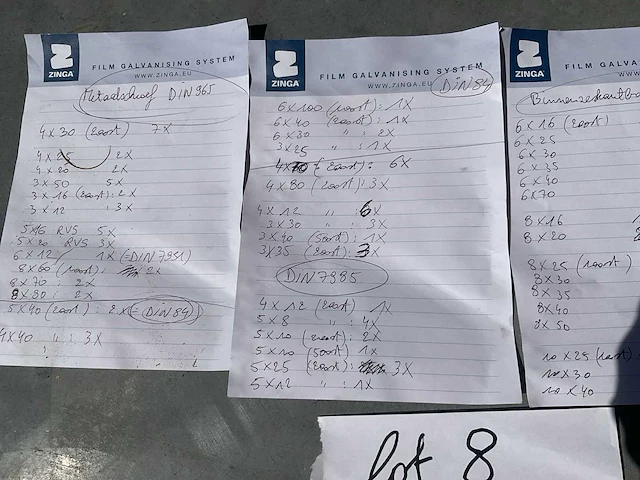 ZINGA
FILM GALVANISING SYSTEM
WWW.ZINGA.EU
Metaalschroef DIN 965
4 x 30 (200st) 7x
4 x 25 2x
4 x 20 2x
3 x 50 5x
3 x 16 (200st) : 2x
3 x 12 : 3x
5x16 RVS 5x
5x20 RVS 3x
6 x 12 1x (=DIN 7991)
8 x 60 (100st) : 2x
8 x 70 : 2x
8 x 90 : 2x
5 x 40 (200st) : 2x (= DIN 84)
4 x 40 " : 3x
ZINGA
FILM GALVANISING SYSTEM
WWW.ZINGA.EU
DIN 84
6 x 100 (100st) : 1x
6 x 40 (200st) : 1x
6 x 30 " : 2x
3 x 25 " : 1x
(200st) : 6x
4 x 80 (200st) : 3x
4 x 12 " 6x
3 x 30 " : 3x
3 x 40 (500st) : 1x
3 x 35 (200st) : 3x
DIN 7985
4 x 12 (200st) 1x
5 x 8 " : 4x
5 x 10 (200st) : 2x
5 x 10 (500st) 1x
5 x 25 (200st) : 3x
5 x 12 " : 1x
ZINGA
FILM GALVANISING
WWW.ZINGA.EU
6 x 16 (200st)
6 x 25
6 x 30
6 x 35
6 x 40
6 x 70
8 x 16
8 x 20
8 x 25 (100st)
8 x 30
8 x 35
8 x 40
8 x 50
10 x 25 (100st)
10 x 30
10 x 40
lot 8